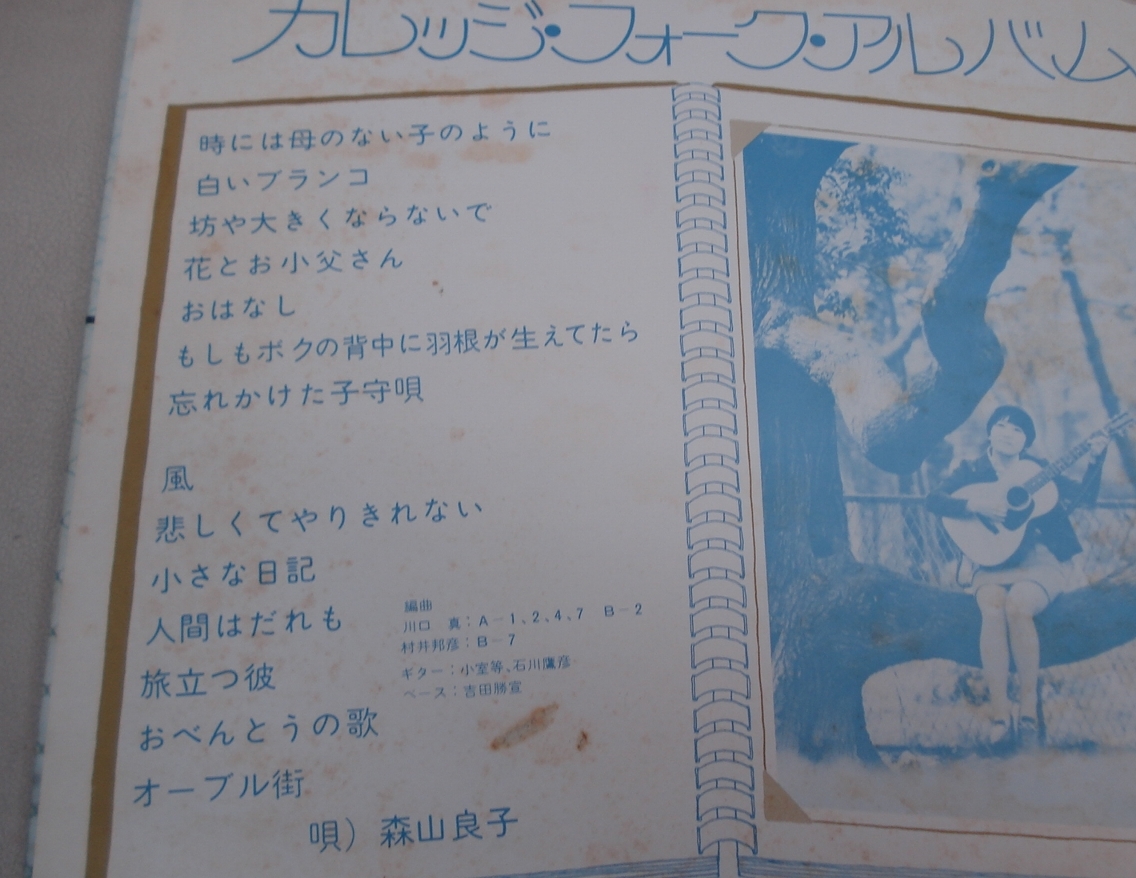 カレッジ・フォーク・アルバム
時には母のない子のように
白いブランコ
坊や大きくならないで
花とお小父さん
おはなし
もしもボクの背中に羽根が生えてたら
忘れかけた子守唄
風
悲しくてやりきれない
小さな日記
人間はだれも
旅立つ彼
おべんとうの歌
オーブル街
編曲
川口 真:A-1、2、4、7 B-2
村井邦彦:B-7
ギター:小室等、石川鷹彦
ベース:吉田勝宣
唄)森山良子